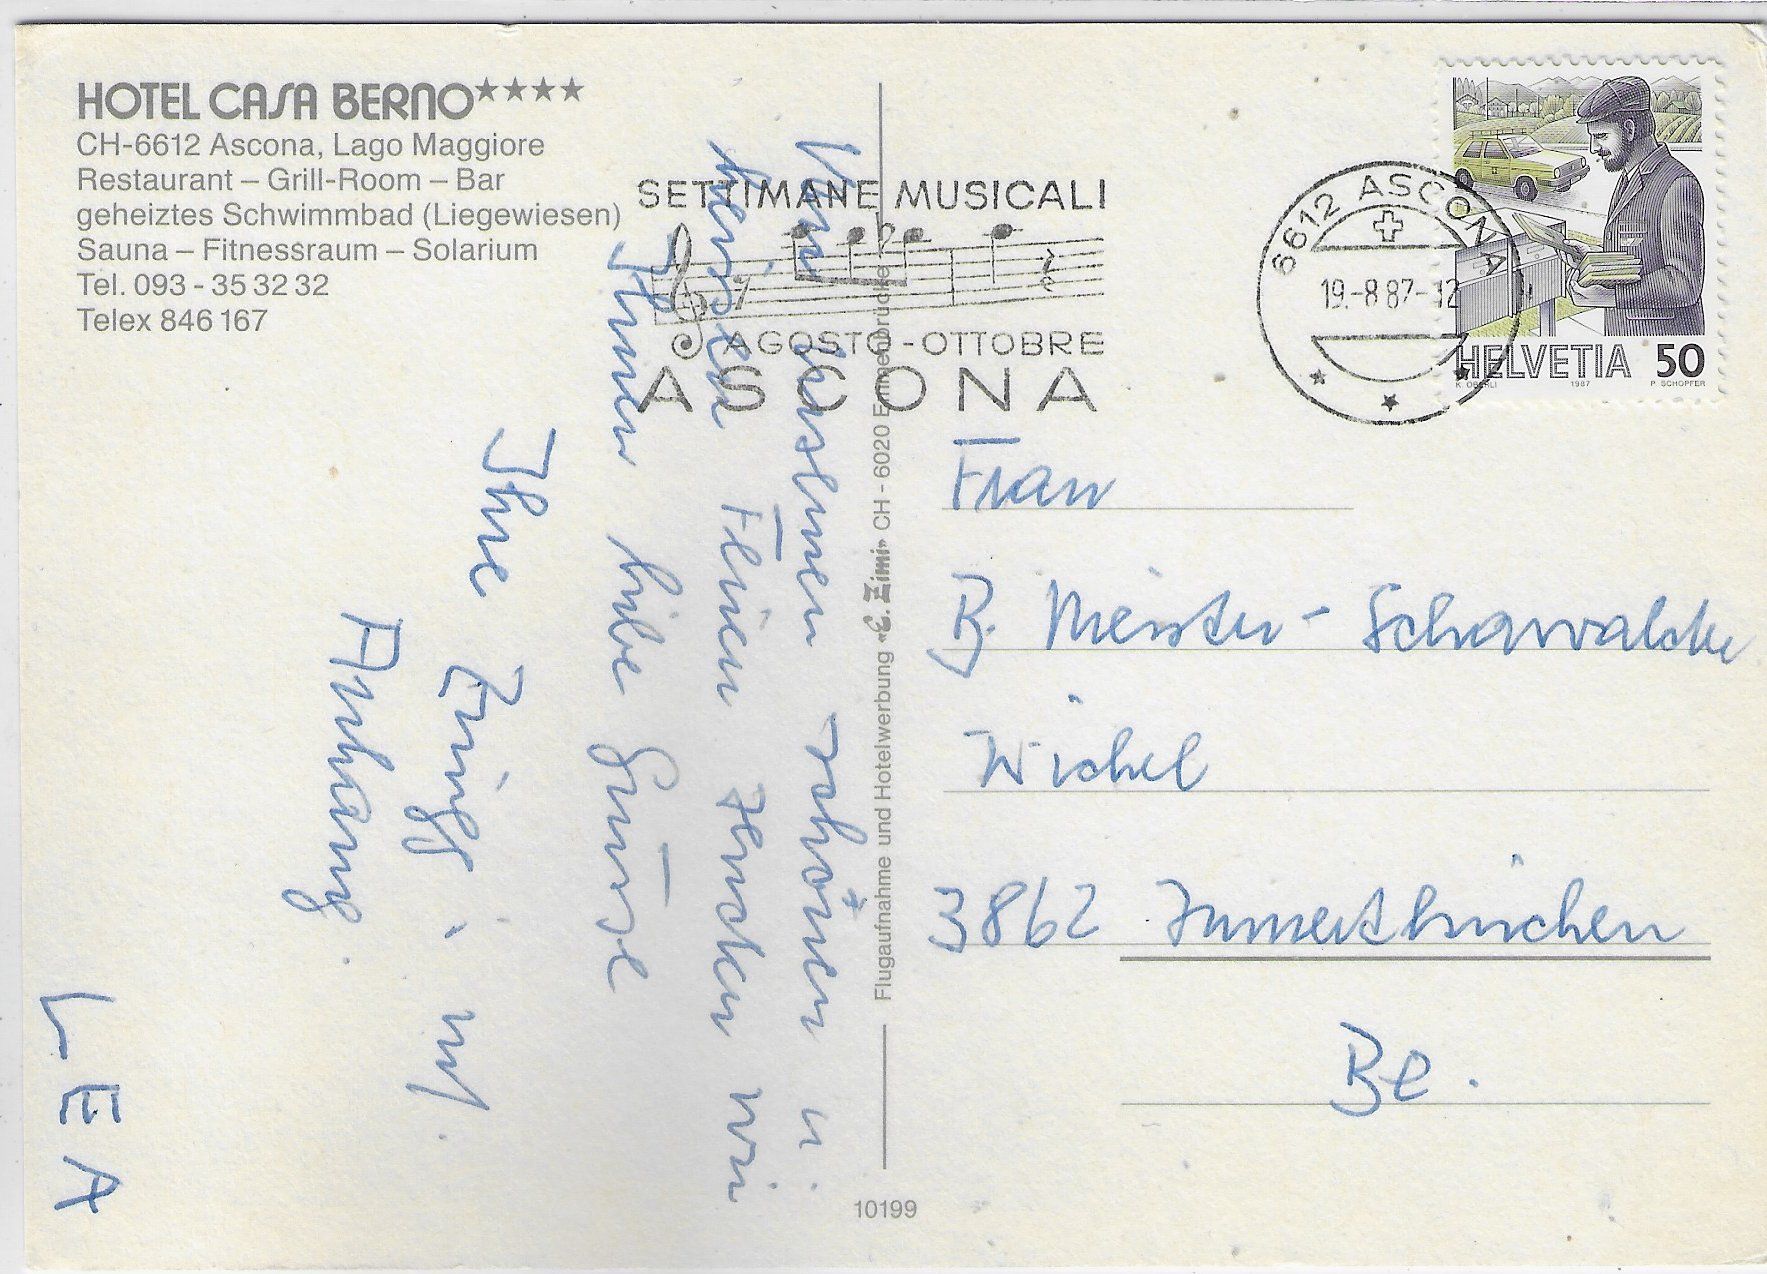 HOTEL CASA BERNO★★★★
CH-6612 Ascona, Lago Maggiore
Restaurant – Grill-Room – Bar
geheiztes Schwimmbad (Liegewiesen)
Sauna – Fitnessraum – Solarium
Tel. 093 - 35 32 32
Telex 846 167
SETTIMANE MUSICALI
AGOSTO - OTTOBRE
ASCONA
6612 ASCONA
19.-8 87-12
HELVETIA 50
K. OBERLI 1987 P. SCHOPFER
schönen u.
heissen Ferien senden wir
Ihnen liebe Grüsse
Ihre
Anhang.
LEA
Flugaufnahme und Hotelwerbung «E. Zimi» CH - 6020 Emmenbrücke 2
Frau
B. Meister-
Wichel
3862 Innertkirchen
Be.
10199